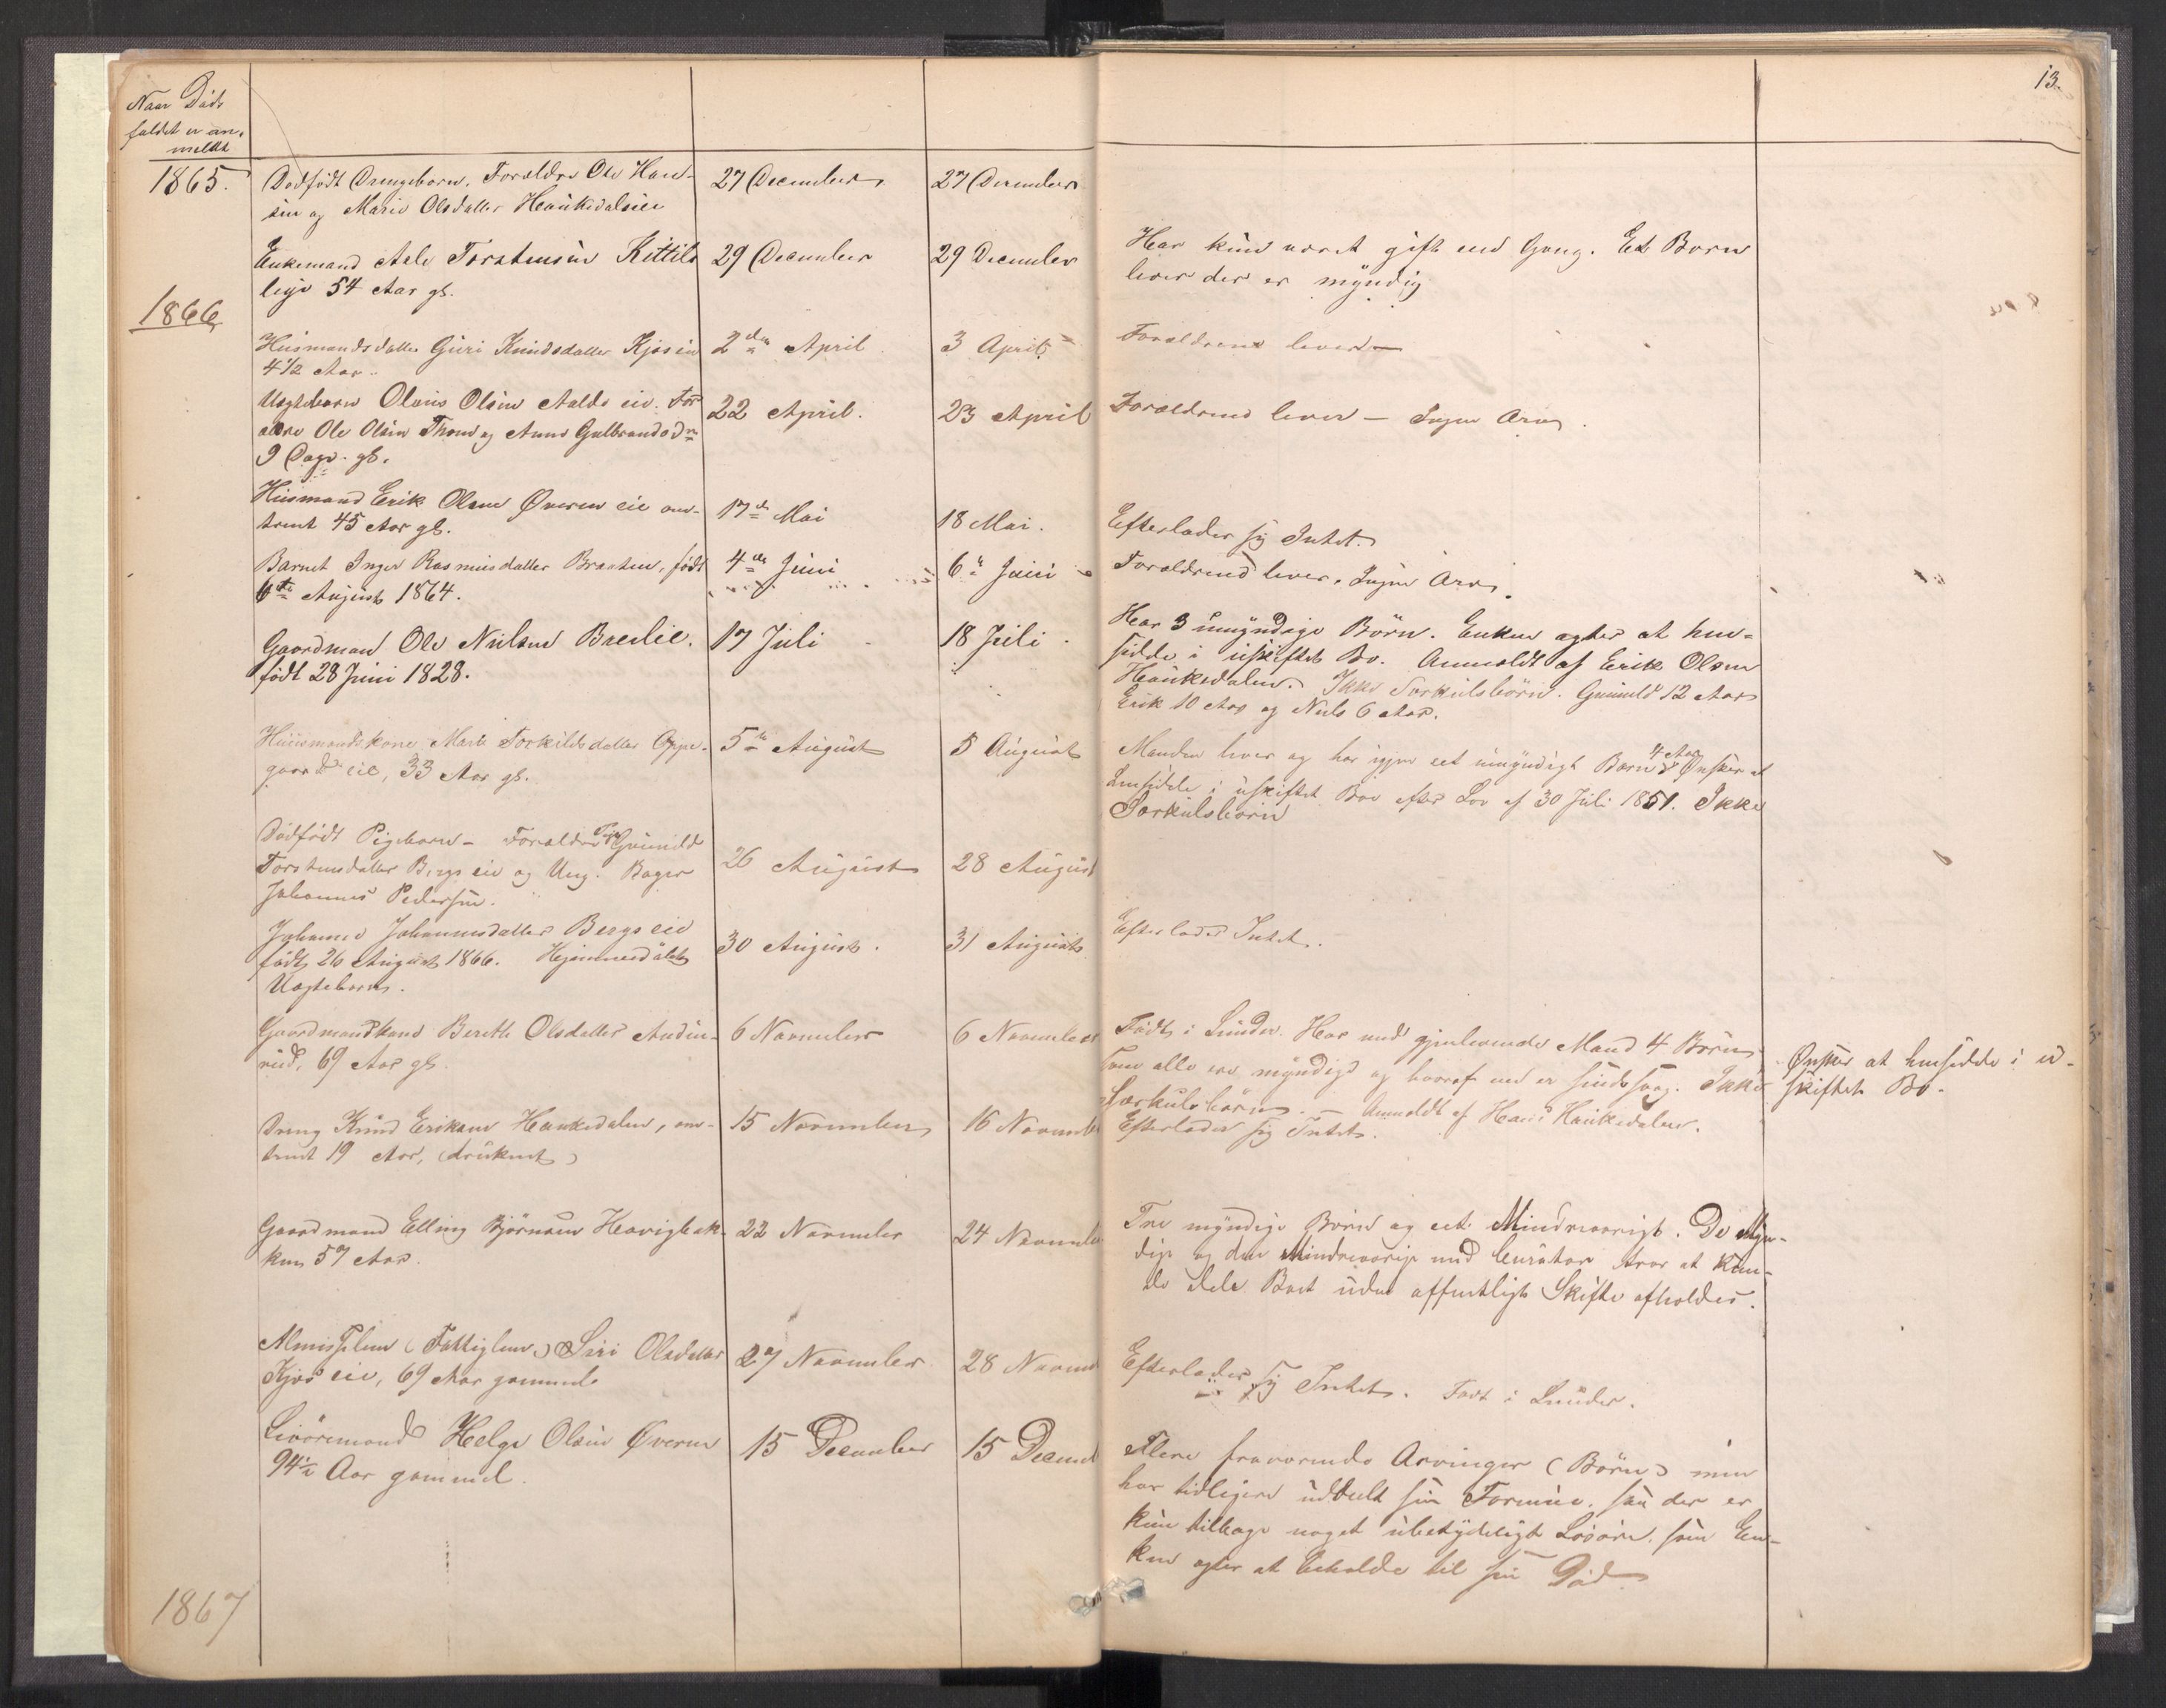 13.
Naar Døds
faldet er an-
meldt
1865.
Dødfødt Drengebarn. Forældre Ole Han-
sen og Marie Olsdatter Haukedalseie
27 December
27 December
Enkemand Asle Torstensen Kittils
leye 54 Aar gl.
29 December
29 December
Har kun været gift en Gang. Et Barn
lever der er myndig
1866
Husmandsdatter Guri Knudsdatter Kjøs eie
4 1/2 Aar.
2den April
3 April
Forældrene lever
Uægtebarn Olaus Olsen Aalds eie. For
ældre Ole Olsen Thon og Anne Gulbrandsdr
9 Dage gl.
22 April.
23 April
Forældrene lever — Ingen Arv.
Husmand Erik Olsen Øveren eie om-
trent 45 Aar gl.
17de Mai
18 Mai.
Efterlader sig Intet.
Barnet Inger Rasmusdatter Braaten, født
6te August 1864.
4de Juni
6te Juni
Forældrene lever. Ingen Arv.
Gaardmand Ole Nielsen Brælie.
født 28 Juni 1828.
17 Juli
18 Juli
Har 3 umyndige Børn. Enken agter at hen-
sidde i uskiftet Bo. Anmeldt af Erik Olsen
Haukedalen. Ikke Særkulsbørn. Gunild 12 Aar
Erik 10 Aar og Niels 6 Aar.
Huusmandskone Marie Torkildsdatter Oppe-
gaards eie, 33 Aar gl.
5te August
5 August
Manden lever og har igjen eet umyndigt Barn 4 Aar. Ønsker at
hensidde i uskiftet Boe efter Lov af 30 Juli 1851. Ikke
Særkulsbørn
Dødfødt Pigebarn - Forældre Pige Gunild
Torstensdatter Bergs eie og Ung. Bager
Johannes Pedersen.
26 August
28 August
Johanne Johannesdatter Bergs eie
født 26 August 1866. Hjemmedøbt
Uægtebarn.
30 August.
31 August
Efterlader Intet.
Gaardmandskone Berethe Olsdatter Audun-
rud, 69 Aar gl.
6 November
6 November
Født i Snuder. Har med gjenlevende Mand 4 Børn,
som alle ere myndige og hvoraf een er sindssvag. Ikke
Særkulsbørn. — Anmeldt af Hans Haukedalen.
Ønsker at hensidde i u-
skiftet Bo.
Dreng Knud Eriksen Haukedalen, om-
trent 19 Aar, (druknet)
15 November
16 Novemb
Efterlader sig Intet.
Gaardmand Elling Bjørnsen Havigbak-
ken 57 Aar.
22 November
24 Novembe
Tre myndige Børn og eet Mindreaarigt. De Myn-
dige og den Mindreaarige med Curator tror at kun-
de dele Boet uden offentligt Skifte afholdes.
Almisselem (Fattiglem) Siri Olsdatter
Kjøs eie, 69 Aar gammel
27 November
28 Novem
Efterlader sig Intet. Født i Snuder.
Livøremand Helge Olsen Øveren
94 1/2 Aar gammel.
15 December
15 Decemb
Flere fraværende Arvinger (Børn) men
har tidligere uddeelt sin Formue, saa der er
kun tilbage noget ubetydeligt Løsøre, som En-
ken agter at beholde til sin Død
1867